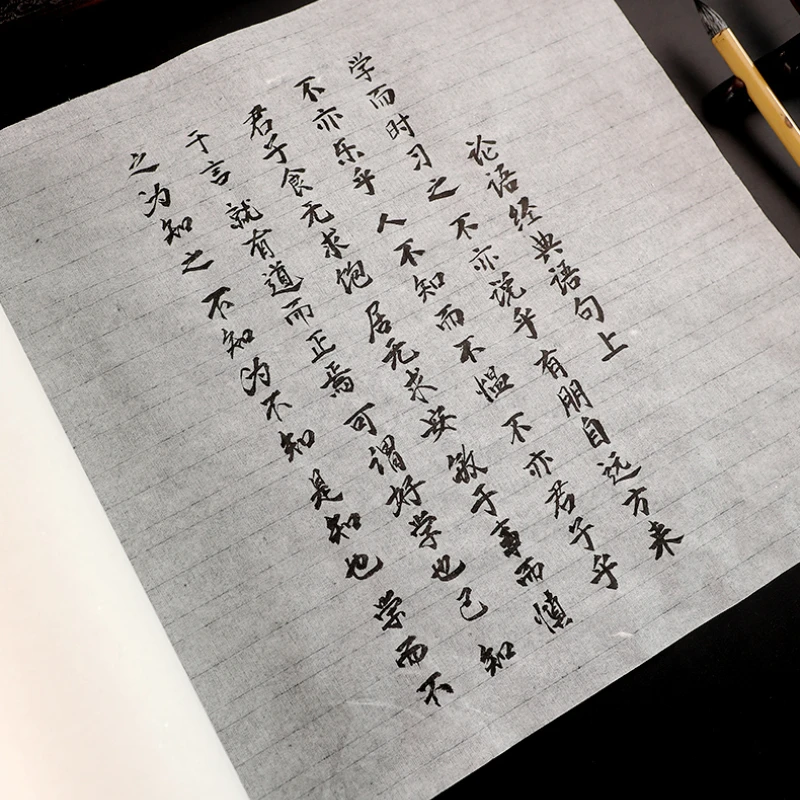 论语经典语句上
学而时习之 不亦说乎 有朋自远方来
不亦乐乎 人不知而不愠 不亦君子乎
君子食无求饱 居无求安 敏于事而慎
于言 就有道而正焉 可谓好学也已 知
之为知之 不知为不知 是知也 学而不